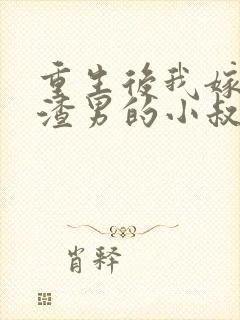 重生後我嫁
渣男的小叔
肖釋